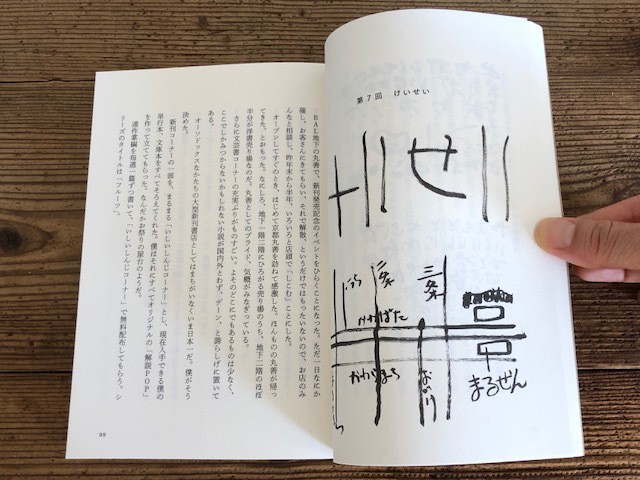 第7回　けいせい
けいせい
三条
二条
いちじょう
けあげ
かわばた
かわらまち
おいけ
まるぜん
BAL地下の丸善で、新刊発売記念のイベントをひらくことになった。ただ一日なにか
催し、お客さんにきてもらい、それで解散、というだけではもったいないので、お店のみ
んなと相談し、昨年末から半年、いろいろと店頭で「しこむ」ことにした。
オープンしてすぐのとき、はじめて京都丸善を訪ねて感激した。ほんものの丸善が帰っ
てきた、とおもった。なにしろ、地下一階二階にひろがる売り場のうち、地下二階のほぼ
半分が洋書売り場なのだ。丸善としてのプライド、気概がみなぎっている。
さらに文芸書コーナーの充実ぶりがものすごい。よそのどこにでもあるものは少なく、
ここでしかみつからないかもしれない小説が国内外とわず、デーン、と誇らしげに置いて
ある。
オーソドックスなかたちの大型新刊書店としてはまちがいなくいま日本一だ。僕がそう
決めた。
新刊コーナーの一部を、まるまる「いしいしんじコーナー」とし、現在入手できる僕の
単行本、文庫本をすべてそろえてくれた。僕はそれにすべてオリジナルの「解説POP」
を作って立ててもらった。なんだかお祭りの屋台のようだ。
連作掌編を毎週一篇ずつ書いて、「いしいしんじコーナー」で無料配布してもらう。シ
リーズのタイトルは「フルーツ」。